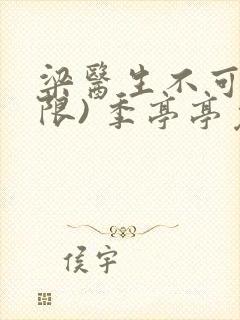 梁醫生不可
限) 季亭亭
侯宇